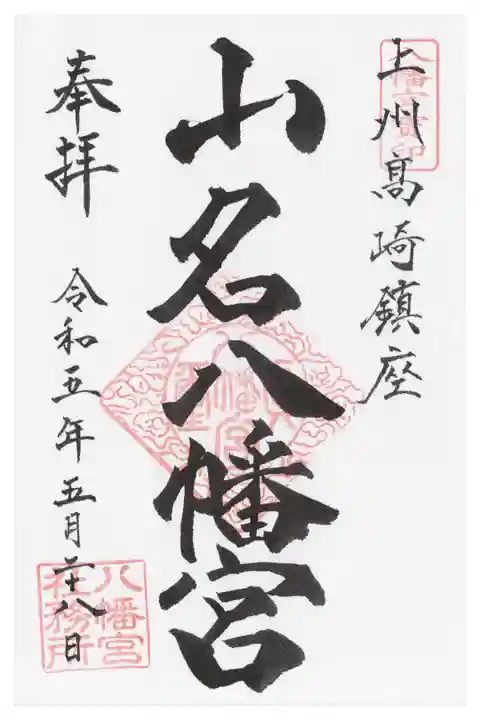 上州髙崎鎮座
山名八幡宮
奉拝 令和五年五月廿八日
八幡宮
社務所